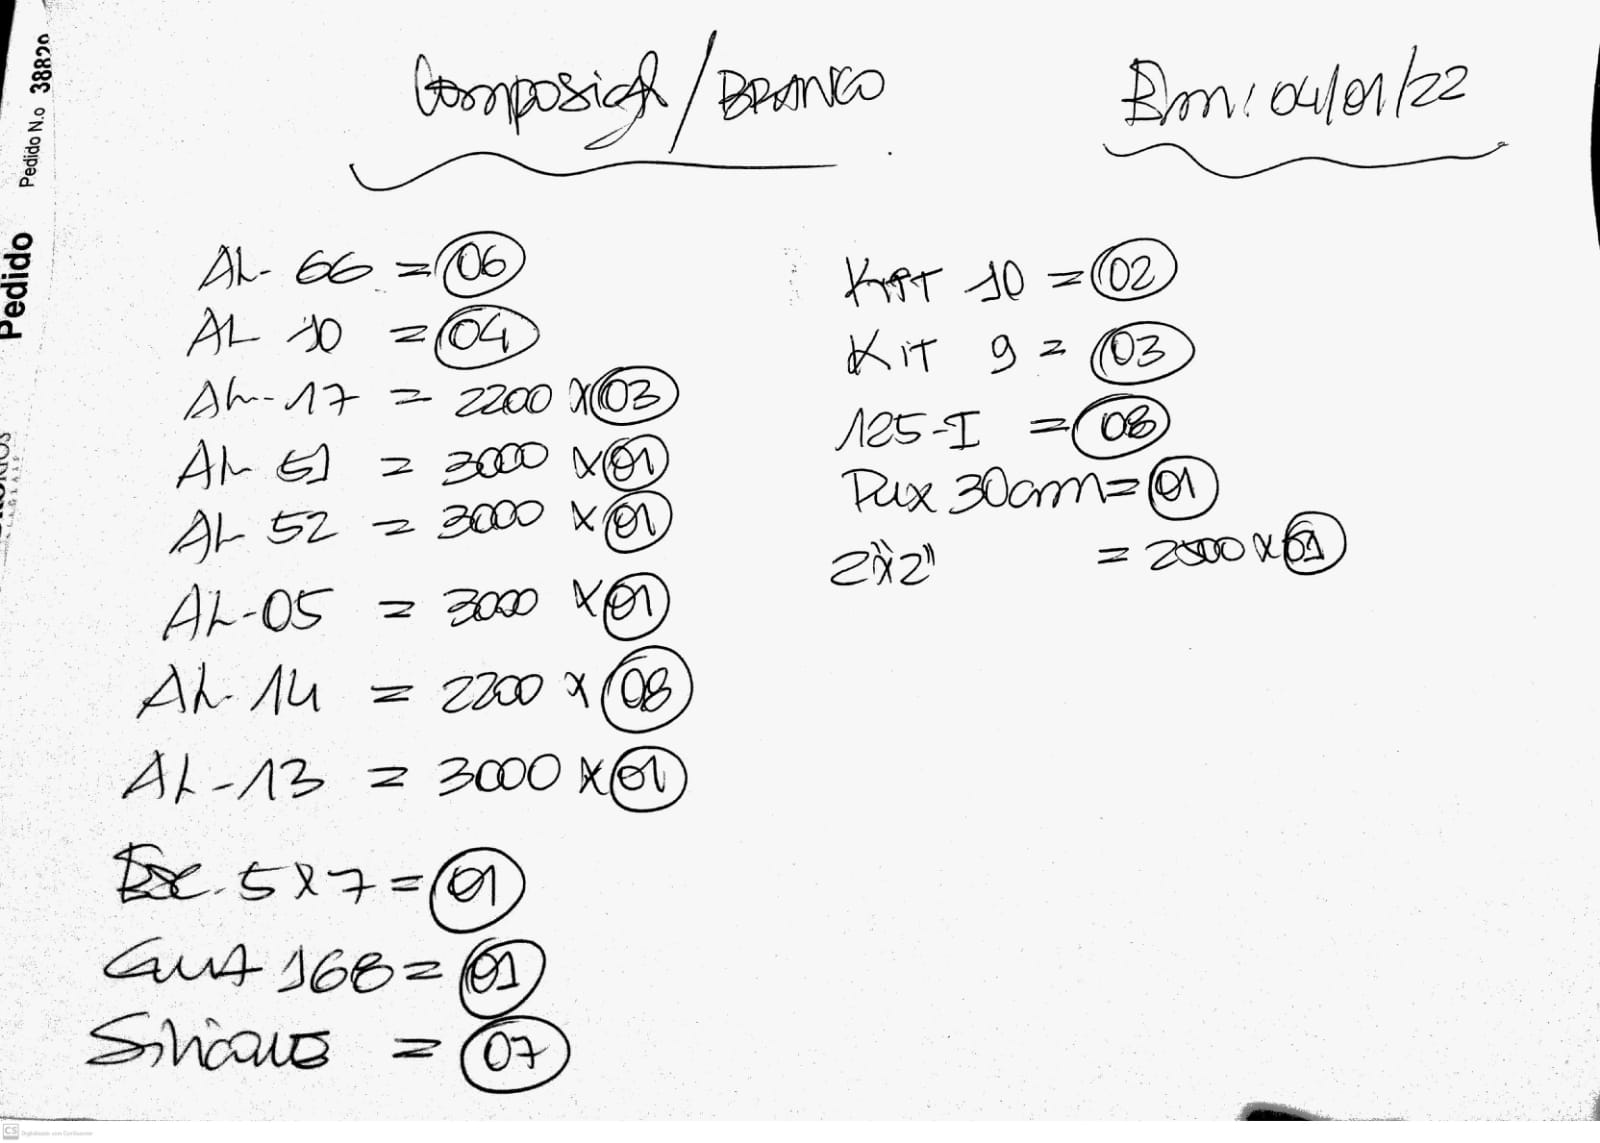 Pedido N.o 38829
Pedido
/ BRANCO
Em: 04/01/22
AL- 66 = 06
AL 10 = 04
AL-17 = 2200 x 03
AL 51 = 3000 x 01
AL 52 = 3000 x 01
AL-05 = 3000 x 01
AL-14 = 2200 x 08
AL-13 = 3000 x 01
Esc. 5x7 = 01
GUA 168 = 01
Silicone = 07
KIT 10 = 02
Kit 9 = 03
125-I = 08
Pux 30cm = 01
2"x2" = 2500 x 01
CS Digitalizado com CamScanner